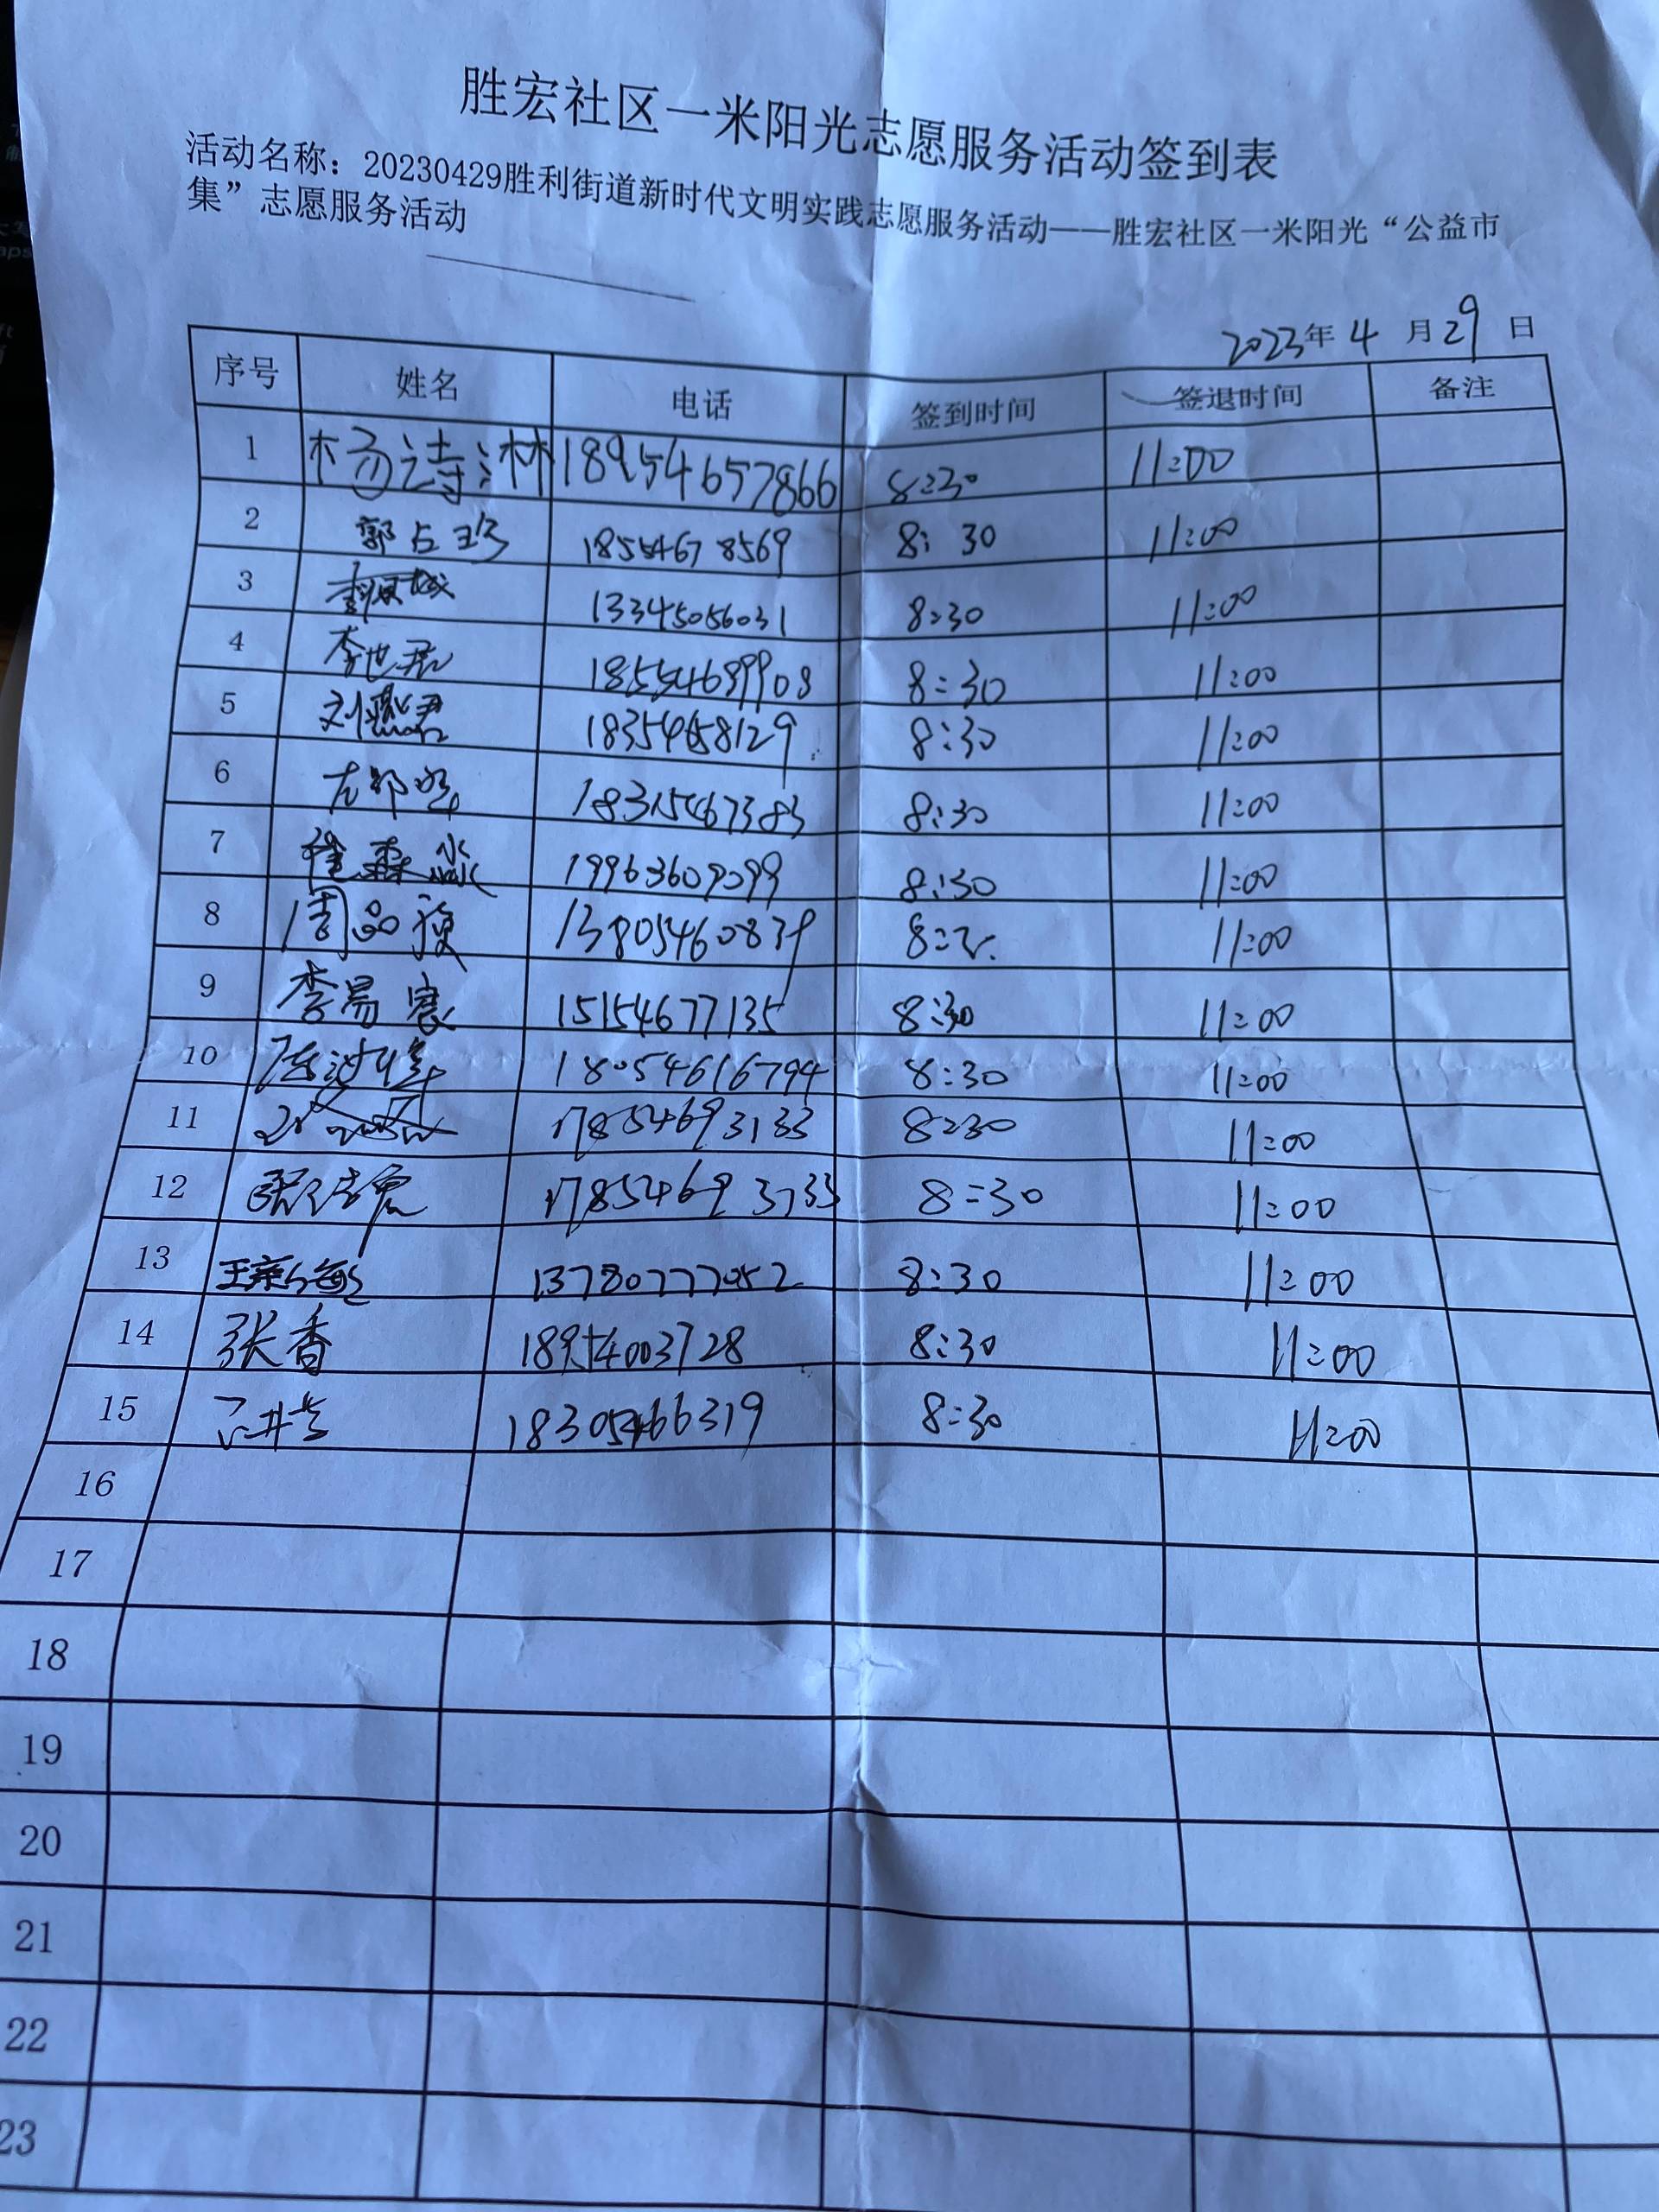 胜宏社区一米阳光志愿服务活动签到表
活动名称：20230429胜利街道新时代文明实践志愿服务活动——胜宏社区一米阳光“公益市
集”志愿服务活动
2023年 4 月 29 日
序号 姓名 电话 签到时间 签退时间 备注
1 杨诗淋 18954657866 8:30 11:00
2 郭占 18554678569 8:30 11:00
3 13345056031 8:30 11:00
4 李世君 18554689908 8:30 11:00
5 刘燕君 18354658129 8:30 11:00
6 18315467383 8:30 11:00
7 崔森淼 19963609099 8:30 11:00
8 周品 13805460839 11:00
9 李易宸 15154677135 8:30 11:00
10 18054616794 8:30 11:00
11 17854693133 8:30 11:00
12 8:30 11:00
13 13780777052 8:30 11:00
14 张香 18954003728 8:30 11:00
15 18305466319 8:30 11:00
16
17
18
19
20
21
22
23